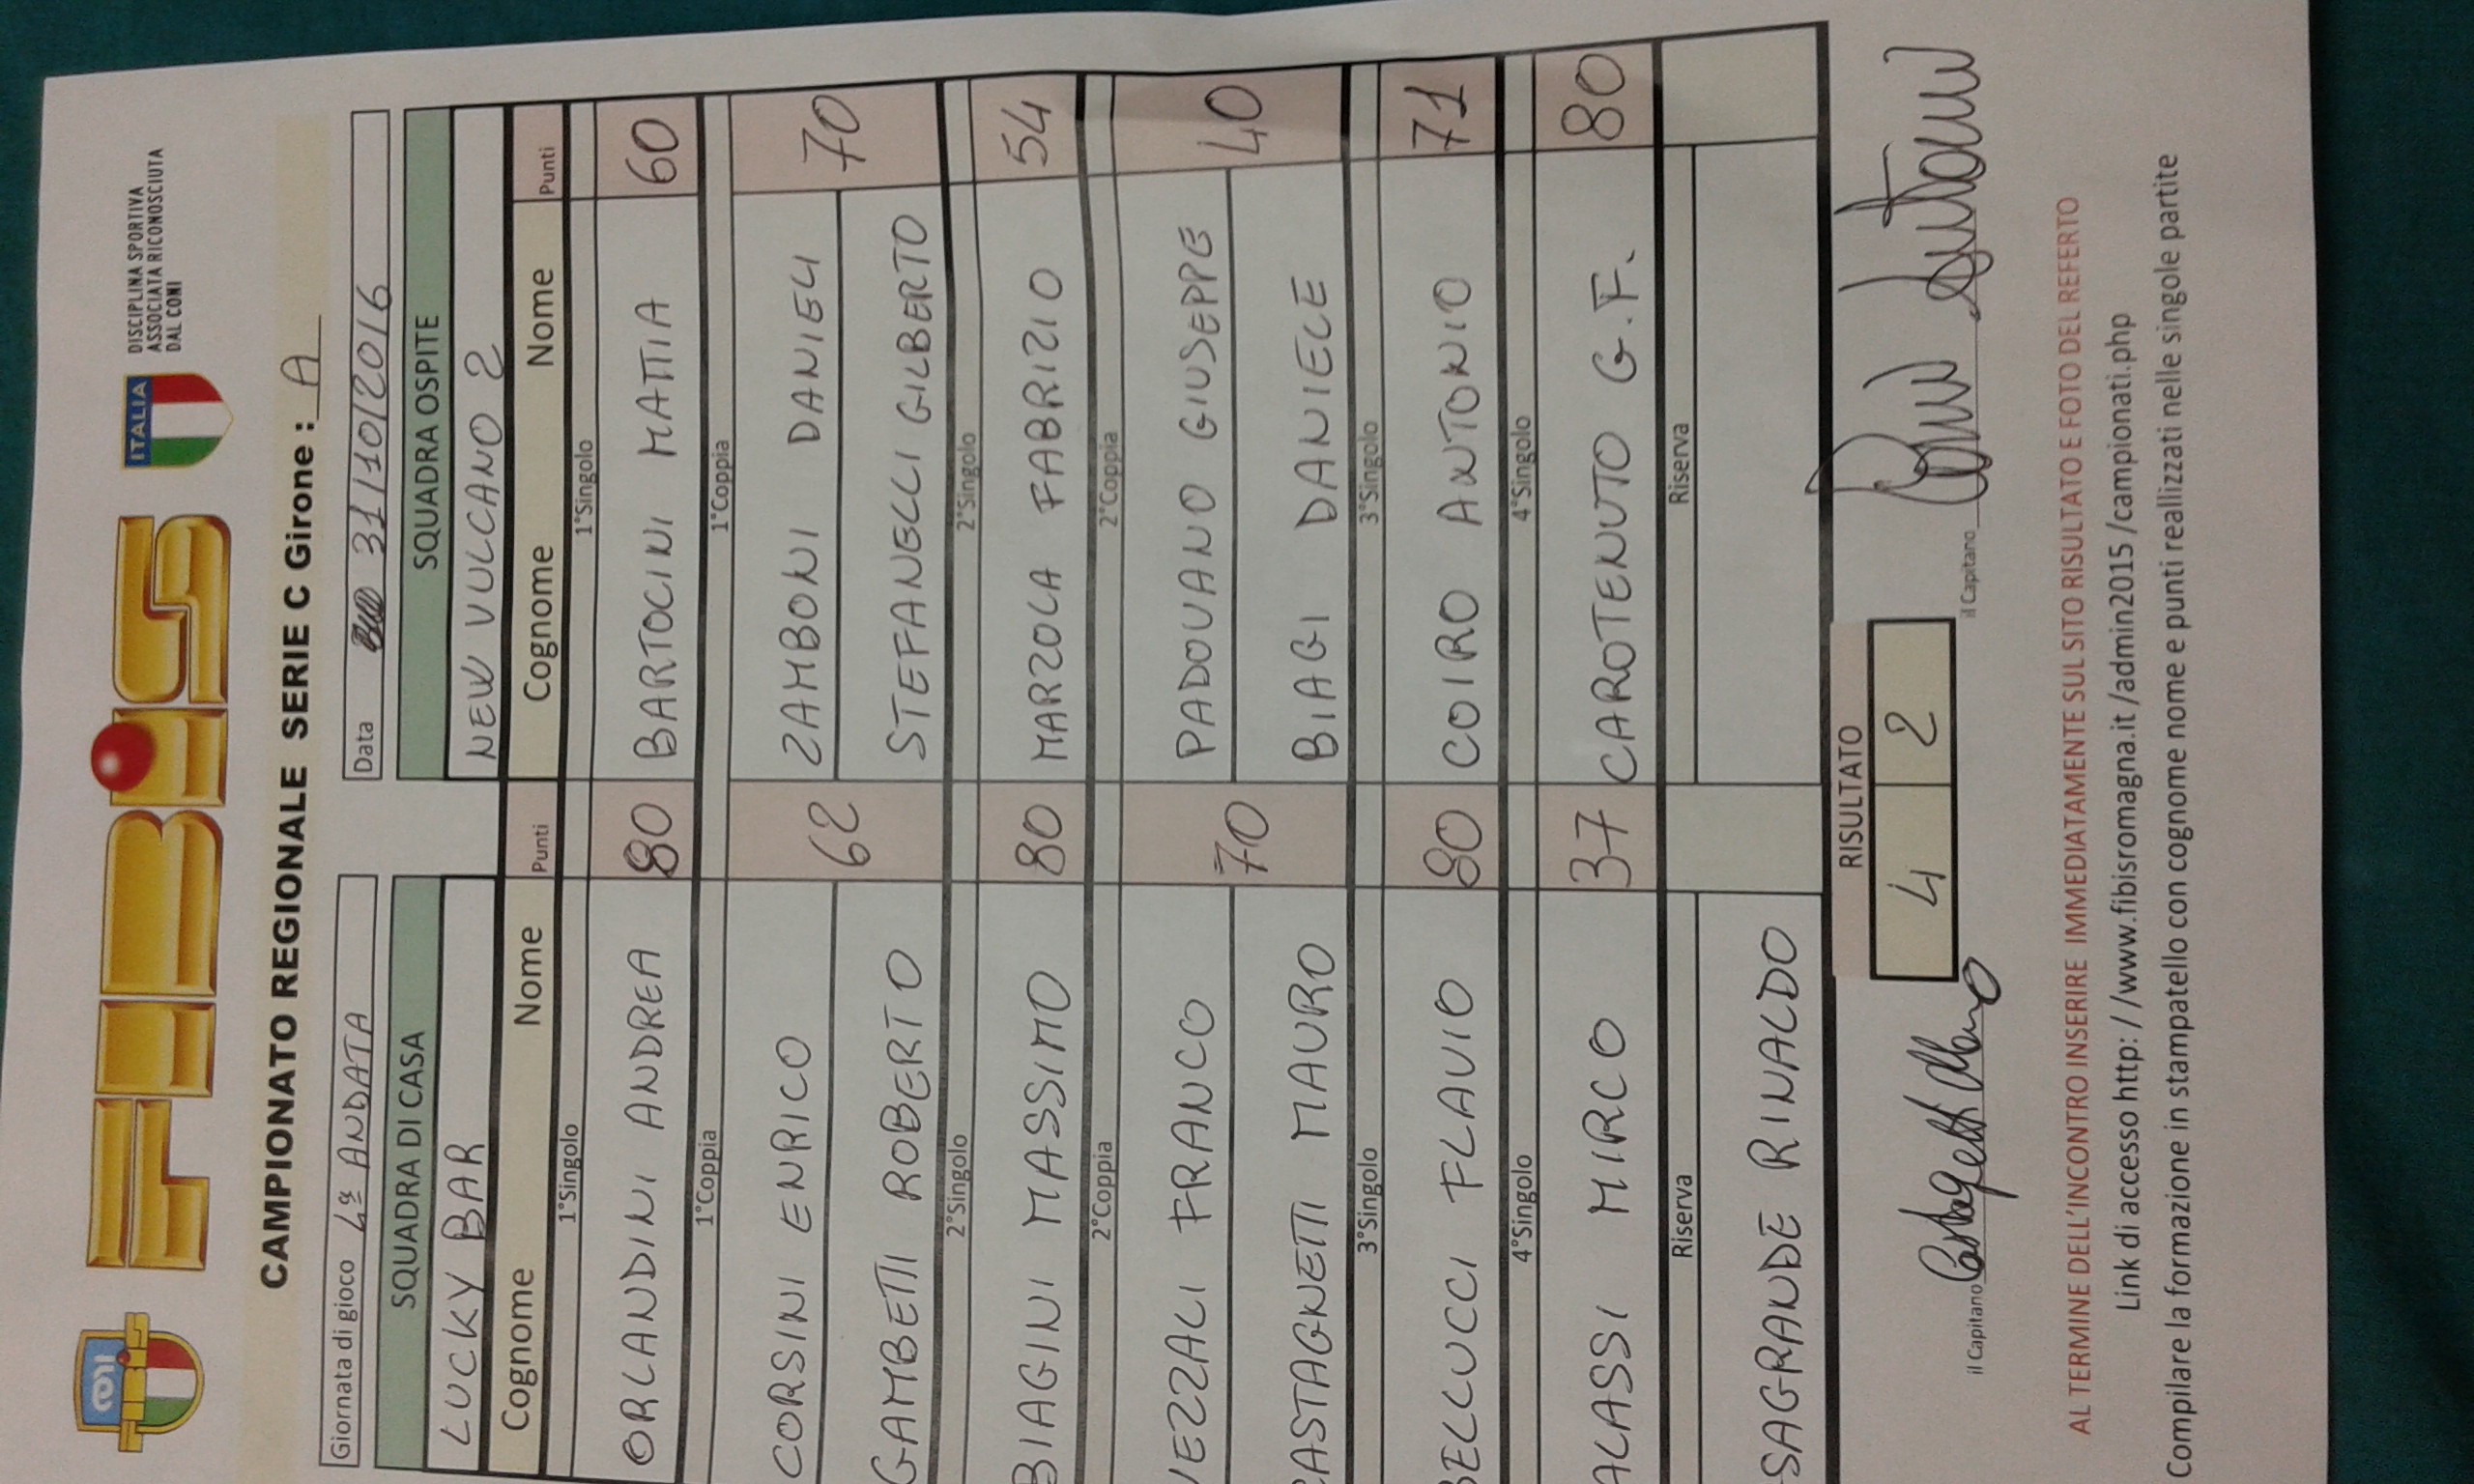 FIBiS
ITALIA
DISCIPLINA SPORTIVA
ASSOCIATA RICONOSCIUTA
DAL CONI
CAMPIONATO REGIONALE SERIE C Girone : A
Giornata di gioco 4ª ANDATA Data 31/10/2016
SQUADRA DI CASA SQUADRA OSPITE
LUCKY BAR NEW VULCANO 2
Cognome Nome Punti Cognome Nome Punti
1°Singolo 1°Singolo
ORLANDINI ANDREA 80 BARTOCINI MATTIA 60
1°Coppia 1°Coppia
CORSINI ENRICO 62 ZAMBONI DANIELI 70
GAMBETTI ROBERTO STEFANELLI GILBERTO
2°Singolo 2°Singolo
BIAGINI MASSIMO 80 MARZOLA FABRIZIO 54
2°Coppia 2°Coppia
VEZZALI FRANCO 70 PADOVANO GIUSEPPE 40
CASTAGNETTI MAURO BIAGI DANIELE
3°Singolo 3°Singolo
BELLUCCI FLAVIO 80 COIRO ANTONIO 71
4°Singolo 4°Singolo
ALASSI MIRCO 37 CAROTENUTO G.F. 80
Riserva Riserva
SAGRANDE RINALDO
RISULTATO
4 2
il Capitano il Capitano
AL TERMINE DELL'INCONTRO INSERIRE IMMEDIATAMENTE SUL SITO RISULTATO E FOTO DEL REFERTO
Link di accesso http: / /www.fibisromagna.it /admin2015 /campionati.php
Compilare la formazione in stampatello con cognome nome e punti reallizzati nelle singole partite